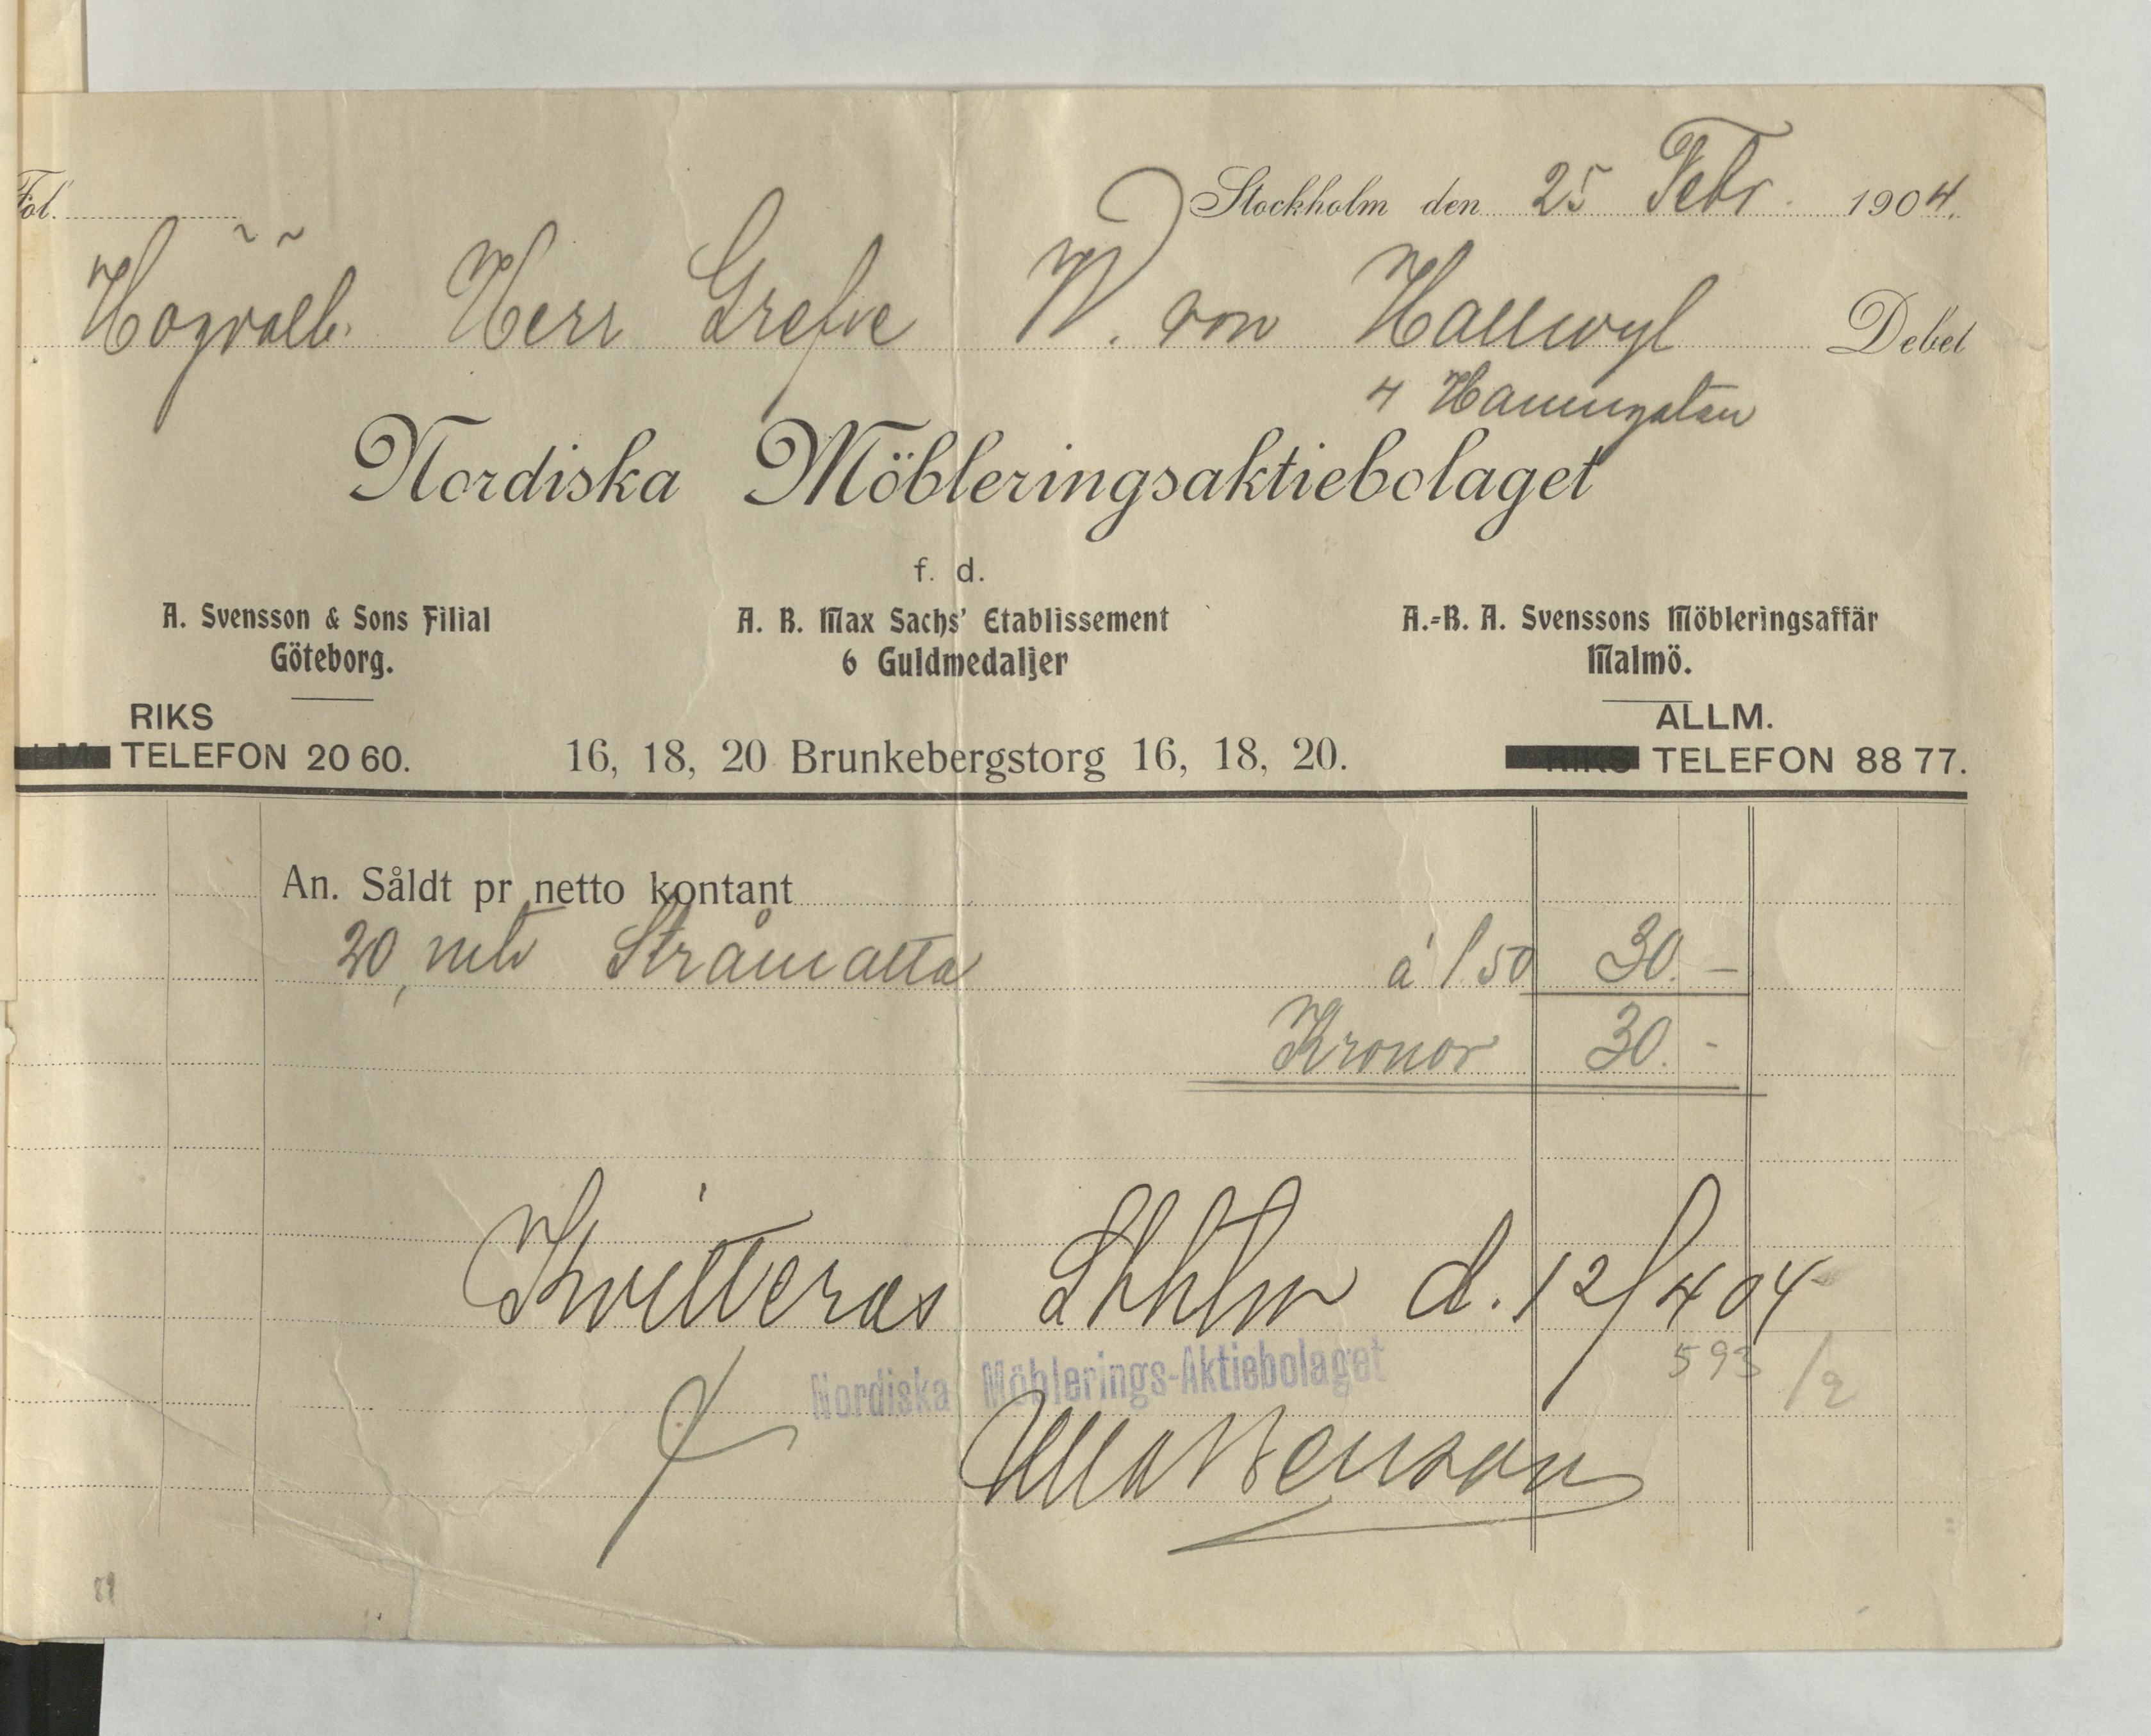 Fol. Stockholm den 25 Febr. 1904.
Högvälb. Herr Grefve W. von Hallwyl Debet
4 Hamngatan
Nordiska Möbleringsaktiebolaget
f. d.
A. Svensson & Sons Filial A. B. Max Sachs' Etablissement A.-B. A. Svenssons Möbleringsaffär
Göteborg. 6 Guldmedaljer Malmö.
RIKS ALLM.
TELEFON 20 60. 16, 18, 20 Brunkebergstorg 16, 18, 20. RIKS TELEFON 88 77.
An. Såldt pr netto kontant
20, mtr Stråmatta á 1.50 30. —
Kronor 30. -
Kvitteras Sthlm d. 12/4 04
593 /2
Nordiska Möblerings-Aktiebolaget